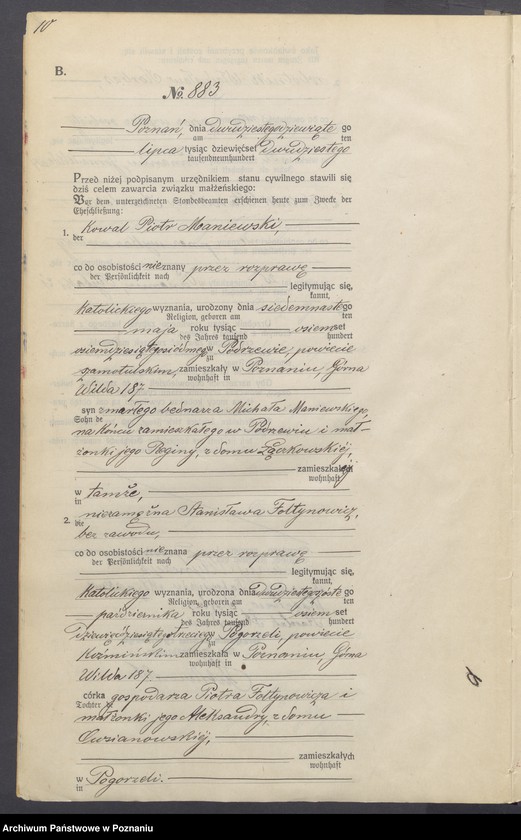 10
B.
№ 883
Poznań, dnia dwudziestegodziewiątego
am ten
lipca tysiąc dziewięćset dwudziestego
tausendneunhundert
Przed niżej podpisanym urzędnikiem stanu cywilnego stawili się
dziś celem zawarcia związku małżeńskiego:
Vor dem unterzeichneten Standesbeamten erschienen heute zum Zwecke der
Eheschließung:
1. Kowal Piotr Maniewski,
der
co do osobistości nieznany przez rozprawę
der Persönlichkeit nach
legitymując się,
kannt,
Katolickiego wyznania, urodzony dnia siedemnastego
Religion, geboren am ten
maja roku tysiąc osiemset
des Jahres tausend hundert
osiemdziesiątego w Podrzewie, powiecie
zu
szamotulskim, zamieszkały w Poznaniu, Górna
wohnhaft in
Wilda 187
syn zmarłego bednarza Michała Maniewskiego,
Sohn de
na końcu zamieszkałego w Podrzewiu i mał-
żonki jego Reginy, z domu Zączkowskiej,
zamieszkałej
wohnhaft
w tamże,
in
2. niezamężna Stanisława Foltynowicz,
die
bez zawodu,
co do osobistości nieznana przez rozprawę
der Persönlichkeit nach
legitymując się,
kannt,
Katolickiego wyznania, urodzona dnia dwudziestegoszóstego
Religion, geboren am ten
października roku tysiąc osiemset
des Jahres tausend hundert
dziewięćdziesiątego w Pogorzeli, powiecie
zu
Koźmińskim zamieszkała w Poznaniu, Górna
wohnhaft in
Wilda 187.
córka gospodarza Piotra Foltynowicza i
Tochter
małżonki jego Aleksandry, z domu
zamieszkałych
wohnhaft
w Pogorzeli.
in
Archiwum Państwowe w Poznaniu